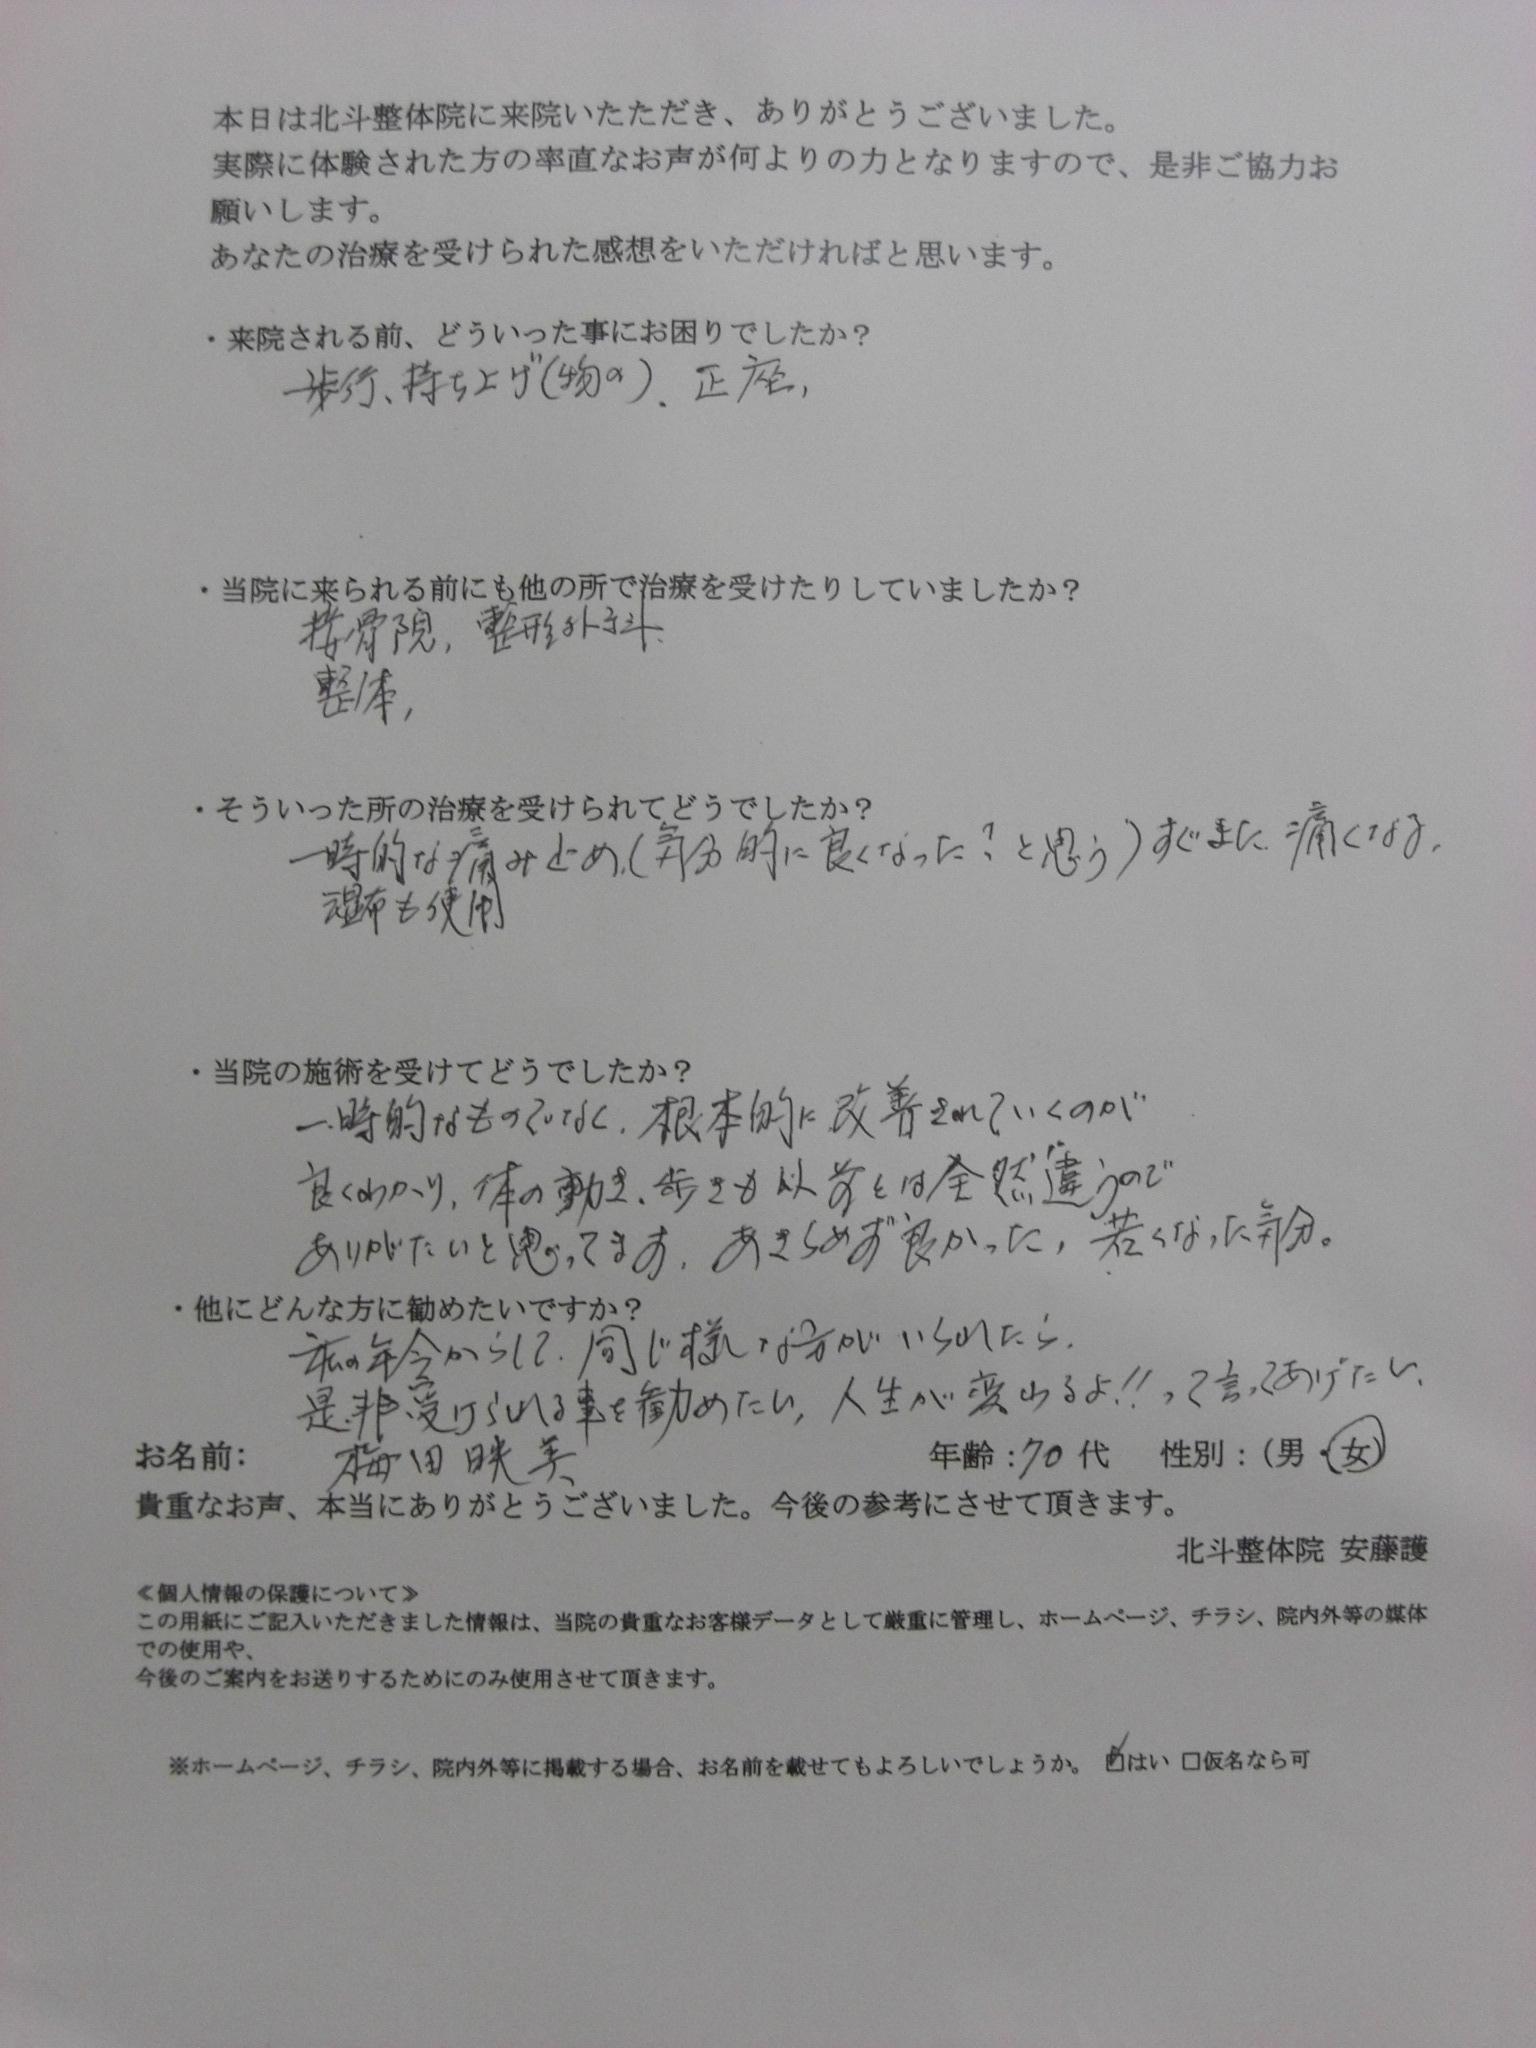 本日は北斗整体院に来院いたただき、ありがとうございました。
実際に体験された方の率直なお声が何よりの力となりますので、是非ご協力お
願いします。
あなたの治療を受けられた感想をいただければと思います。
・来院される前、どういった事にお困りでしたか？
歩行、持ち上げ(物の)、正座、
・当院に来られる前にも他の所で治療を受けたりしていましたか？
接骨院、整形外科、
整体、
・そういった所の治療を受けられてどうでしたか？
一時的な痛み止め、(気分的に良くなった？と思う)すぐまた痛くなる、
湿布も使用
・当院の施術を受けてどうでしたか？
一時的なものでなく、根本的に改善されていくのが
良くわかり、体の動き、歩きも以前とは全然違うので
ありがたいと思ってます、あきらめず良かった、若くなった気分。
・他にどんな方に勧めたいですか？
私の年令からして、同じ様な方がいられたら、
是非受けられる事を勧めたい、人生が変わるよ!!って言ってあげたい、
お名前： 梅田映美 年齢：70 代 性別：(男・女)
貴重なお声、本当にありがとうございました。今後の参考にさせて頂きます。
北斗整体院 安藤護
≪個人情報の保護について≫
この用紙にご記入いただきました情報は、当院の貴重なお客様データとして厳重に管理し、ホームページ、チラシ、院内外等の媒体
での使用や、
今後のご案内をお送りするためにのみ使用させて頂きます。
※ホームページ、チラシ、院内外等に掲載する場合、お名前を載せてもよろしいでしょうか。 ☑はい □仮名なら可